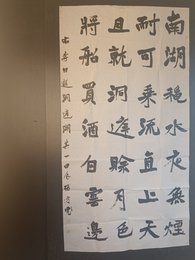 南湖秋水夜無煙
耐可乘流直上天
且就洞庭賒月色
將船買酒白雲邊
李白遊洞庭湖